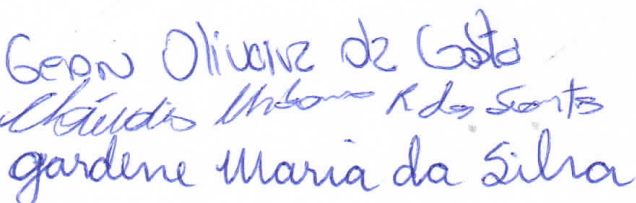 Gean Oliveira da Costa
Cláudio R dos Santos
gardene Maria da Silva